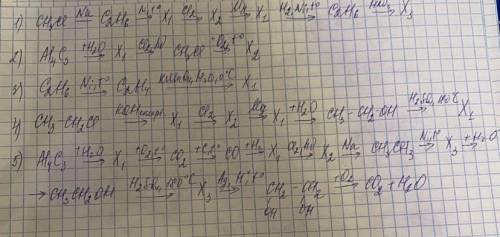 1) CH₃Cl —Na→ C₂H₆ —Ni,t°→ X₁ —Cl₂→ X₂ —Mg→ X₁ —H₂,Ni,t°→ C₂H₆ —HNO₃→ X₃
2) Al₄C₃ —+H₂O→ X₁ —Cl₂,hν→ CH₃Cl —+O₂,t°→ X₂
3) C₂H₆ —Ni,t°→ C₂H₄ —KMnO₄,H₂O,0°C→ X₁
4) CH₃-CH₂Cl —KOH→ X₁ —Cl₂→ X₂ —Mg→ X₁ —+H₂O→ CH₃-CH₂-OH —H₂SO₄,180°C→ X₁
5) Al₄C₃ —+H₂O→ X₁ —+O₂,t°→ CO₂ —+C,t°→ CO —+H₂→ X₁ —Cl₂,hν→ X₂ —Na→ CH₃CH₃ —Ni,t°→ X₃ —+H₂O→
→ CH₃CH₂OH —H₂SO₄,180°C→ X₃ → CH₂-CH₂ —+O₂→ CO₂+H₂O
OH OH